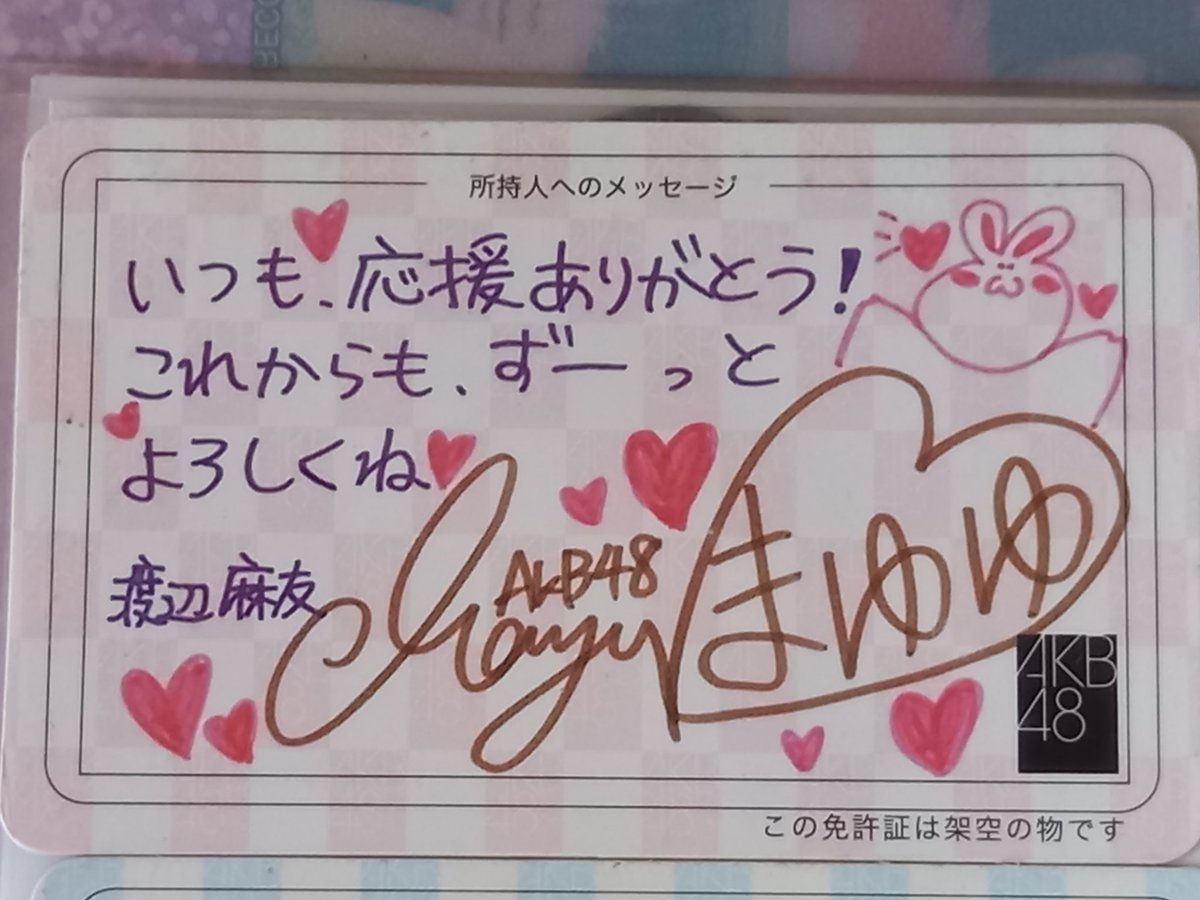 所持人へのメッセージ
いつも、応援ありがとう!
これからも、ずーっと
よろしくね
渡辺麻友
AKB48
Mayu
まゆゆ
AKB
48
この免許証は架空の物です